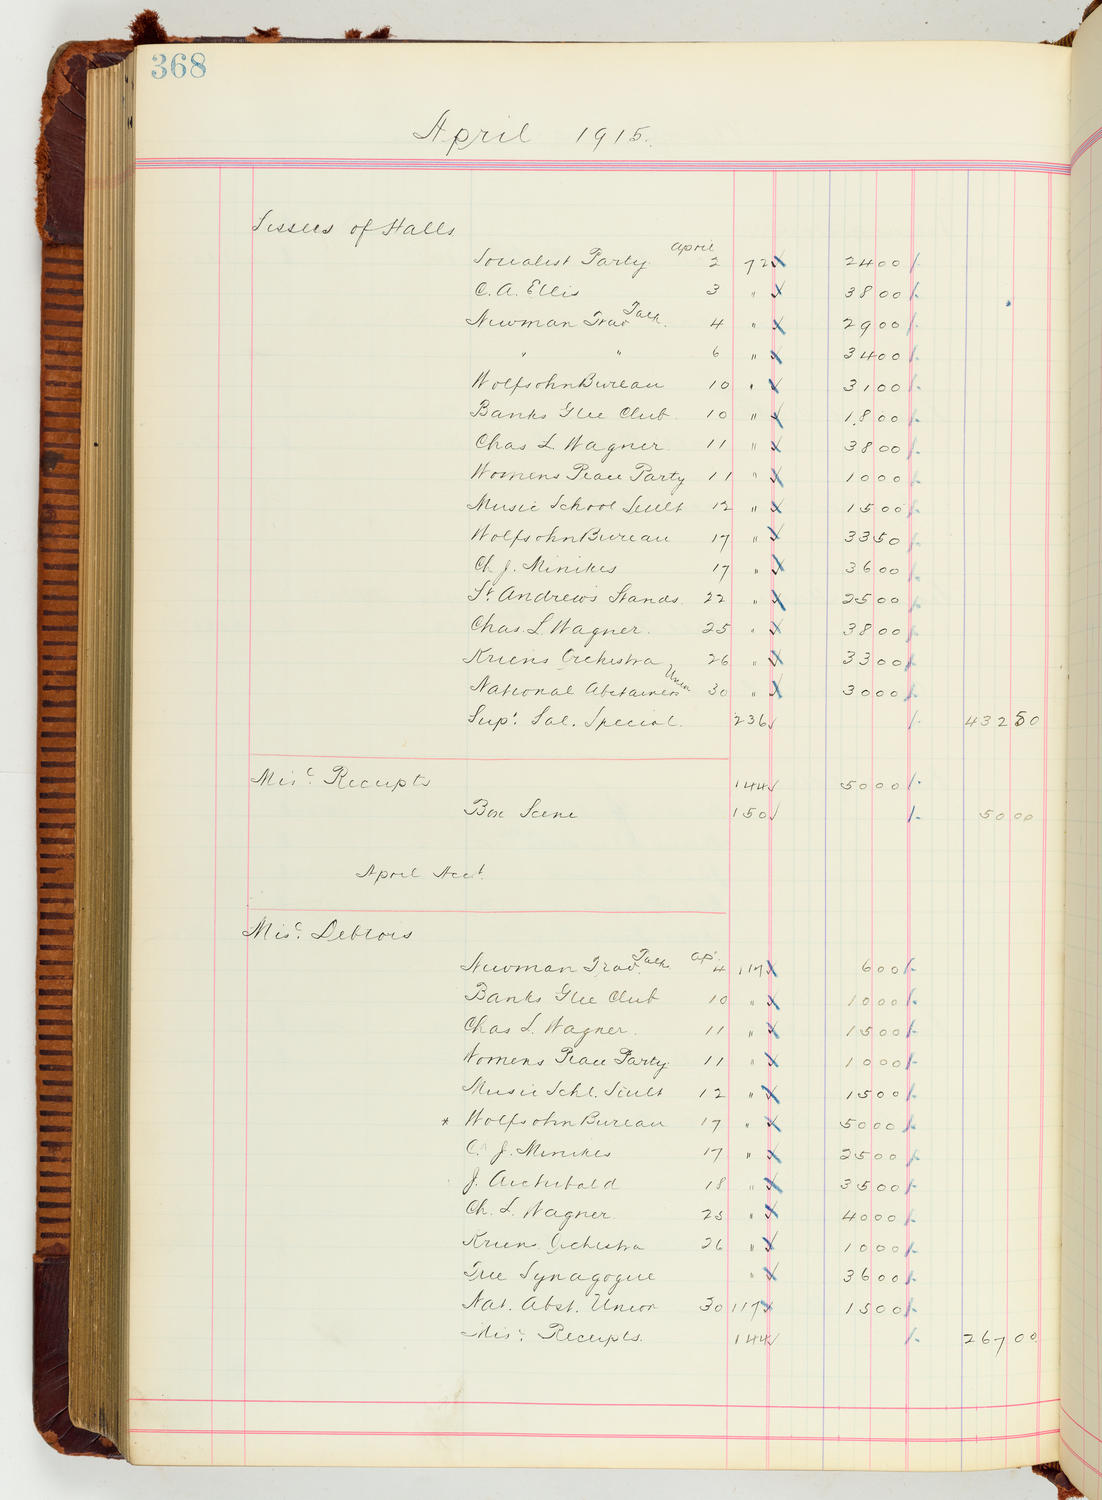 368
April 1915.
Lessees of Halls
April
Socialist Party 2 72 2400
C. A. Ellis 3 " 3800
Newman Trav. Talk. 4 " 2900
" " 6 " 3400
Wolfsohn Bureau 10 " 3100
Banks Glee Club 10 " 1800
Chas L. Wagner 11 " 3800
Womens Peace Party 11 " 1000
Music School Settlt 12 " 1500
Wolfsohn Bureau 17 " 3350
Ch. J. Minikes 17 " 3600
St Andrews Stands 22 " 2500
Chas. L. Wagner. 25 " 3800
Kriens Orchestra 26 " 3300
National Abstainers Union 30 " 3000
Supt. Sal. Special. 236 43250
Misc. Receipts 144 5000
Box Scene 150 5000
April Acct.
Misc. Debtors
Newman Trav. Talk Ap. 4 117 600
Banks Glee Club 10 " 1000
Chas L. Wagner. 11 " 1500
Womens Peace Party 11 " 1000
Music Schl. Settlt 12 " 1500
* Wolfsohn Bureau 17 " 5000
C. J. Minikes 17 " 2500
J. Archibald 18 " 3500
Ch. L. Wagner 25 " 4000
Kriens Orchestra 26 " 1000
Free Synagogue " 3600
Nat. Abst. Union 30 117 1500
Misc. Receipts. 144 26700